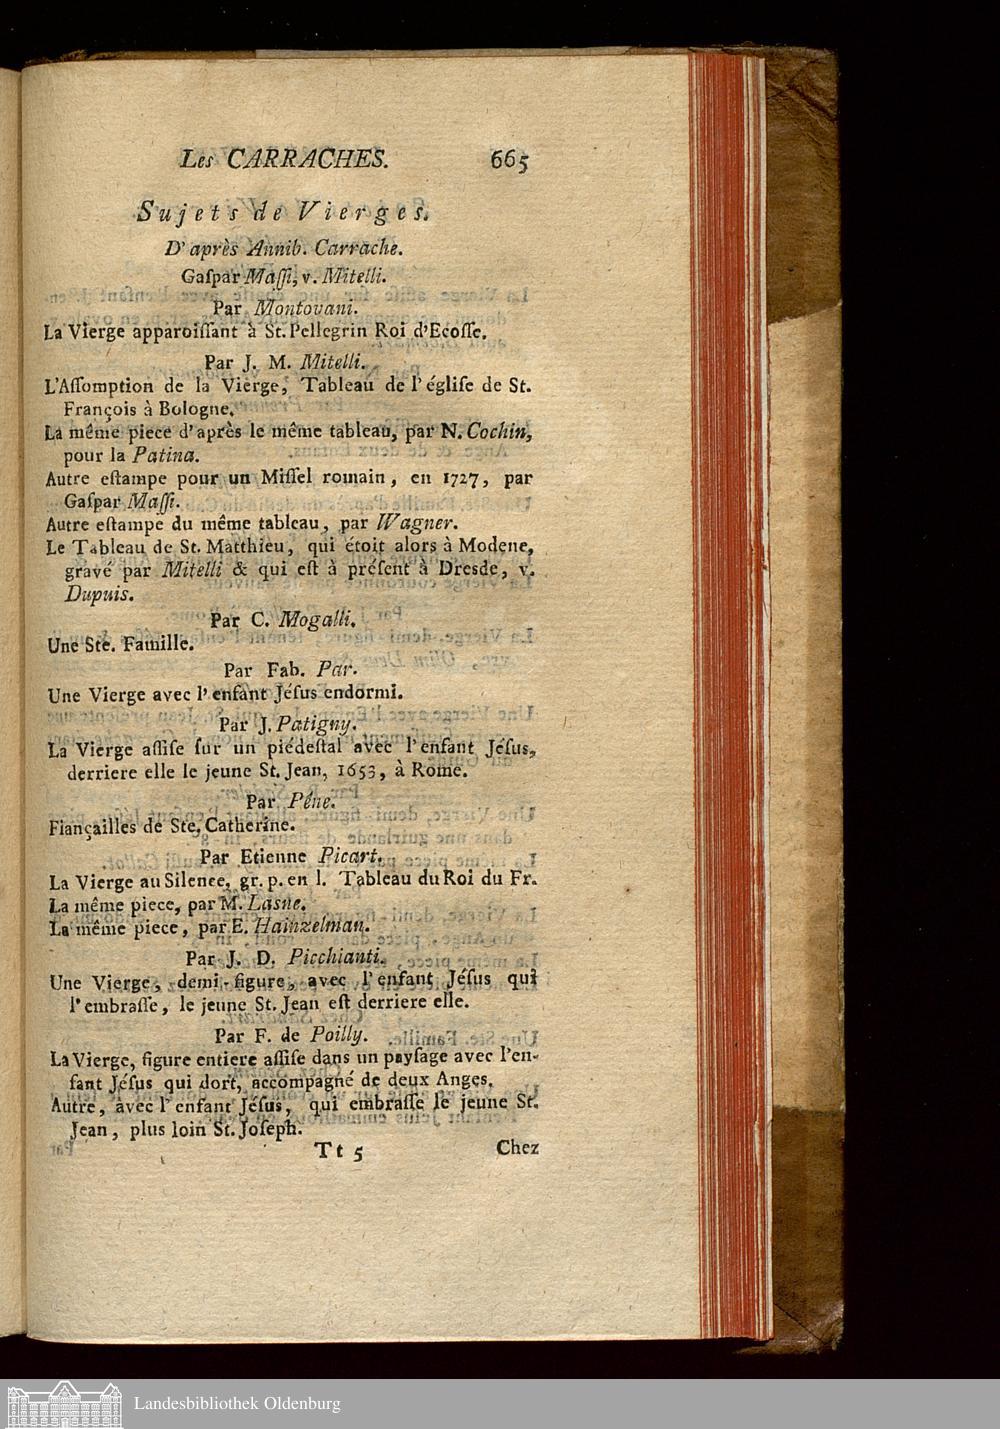 Les CARRACHES. 665
Sujets de Vierges.
D'après Annib. Carrache.
Gaſpar Maſſi, v. Mitelli.
Par Montovani.
La Vierge apparoiſſant à St. Pellegrin Roi d'Ecoſſe.
Par J. M. Mitelli.
L'Aſſomption de la Vierge, Tableau de l'égliſe de St.
François à Bologne.
La même piece d'après le même tableau, par N. Cochin,
pour la Patina.
Autre eſtampe pour un Miſſel romain, en 1727, par
Gaſpar Maſſi.
Autre eſtampe du même tableau, par Wagner.
Le Tableau de St. Matthieu, qui étoit alors à Modene,
gravé par Mitelli & qui eſt à préſent à Dresde, v.
Dupuis.
Par C. Mogalli.
Une Ste. Famille.
Par Fab. Par.
Une Vierge avec l'enfant Jéſus endormi.
Par J. Patigny.
La Vierge aſſiſe ſur un piédeſtal avec l'enfant Jéſus,
derriere elle le jeune St. Jean, 1653, à Rome.
Par Péne.
Fiançailles de Ste. Catherine.
Par Etienne Picart.
La Vierge au Silence, gr. p. en l. Tableau du Roi du Fr.
La même piece, par M. Lasne.
La même piece, par E. Hainzelman.
Par J. D. Picchianti.
Une Vierge, demi-figure, avec l'enfant Jéſus qui
l'embraſſe, le jeune St. Jean eſt derriere elle.
Par F. de Poilly.
La Vierge, figure entiere aſſiſe dans un payſage avec l'en-
fant Jéſus qui dort, accompagné de deux Anges.
Autre, avec l'enfant Jéſus, qui embraſſe le jeune St.
Jean, plus loin St. Joſeph.
Tt 5 Chez
Landesbibliothek Oldenburg